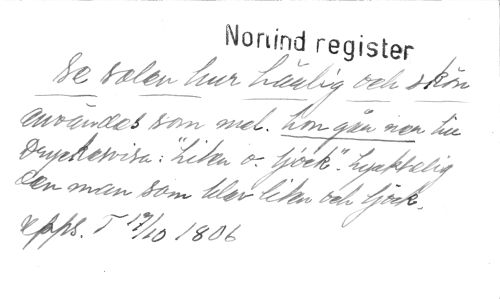 Norlind register
Se solen hur härlig och skön
användes som mel. hon går ner till
Dryckesvisa: "Liten o. tjock". Lycksalig
den man som blev liten och tjock.
upps. T 17/10 1806